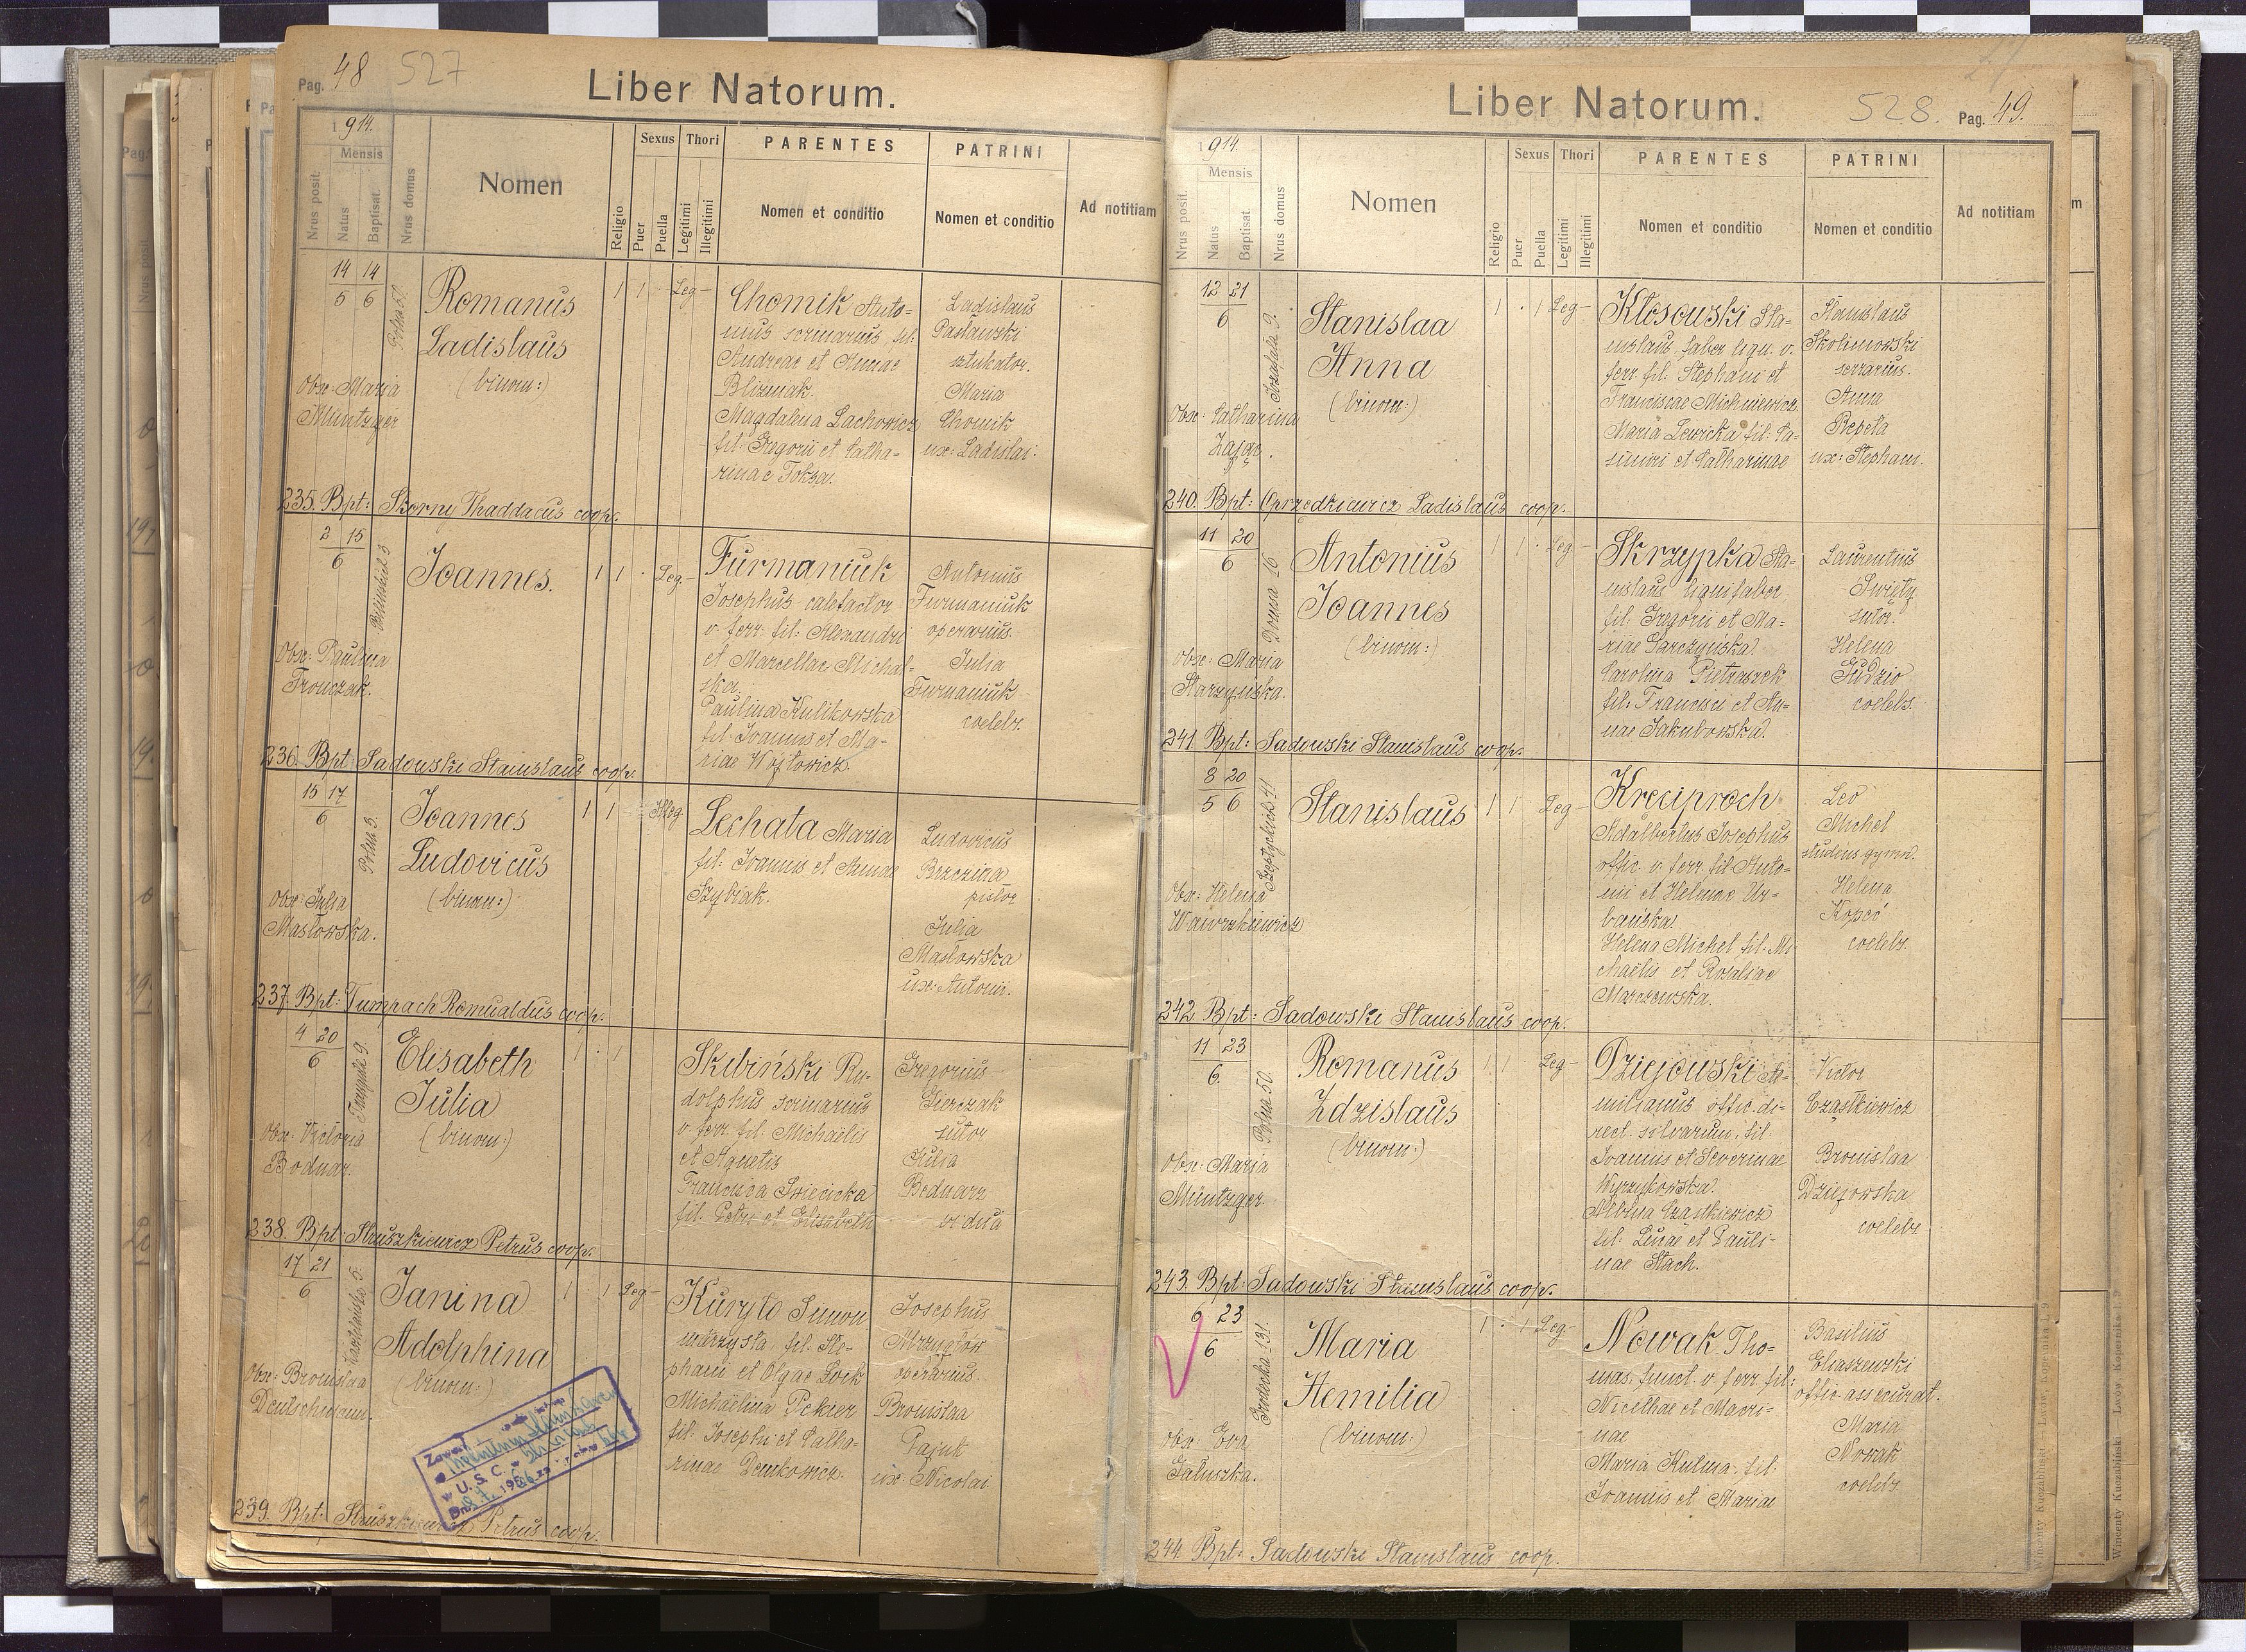 Pag. 48 527
Liber Natorum.
1914.
Mensis
Nrus posit.
Natus
Baptisat.
Nrus domus
Nomen
Religio
Sexus
Puer
Puella
Thori
Legitimi
Illegitimi
PARENTES
Nomen et conditio
PATRINI
Nomen et conditio
Ad notitiam
14 14
5 6
Polna 52.
Romanus
Ladislaus
(binom:)
Obx. Maria
Müntzger
1 1 · Leg—
Chomik Anto-
nius scrinarius, fil:
Andreae et Annae
Bliźniak.
Magdalena Lachowicz
fil: Gregorii et Catha-
rinae Tokza.
Ladislaus
Pasławski
sztukator.
Maria
Chomik
ux: Ladislai:
235. Bpt: Skorny Thaddaeus coop.
2 15
6
Joannes.
Obx: Paulina
Fronczak.
1 1 · Leg.—
Furmaniuk
Josephus calefactor
v. ferr: fil: Alexandri
et Marcellae Michal-
ska.
Paulina Kulikowska
fil. Joannis et Ma-
riae Wojtowicz.
Antonius
Furmaniuk
operarius.
Julia
Furmaniuk
coelebs.
236. Bpt: Sadowski Stanislaus coop.
15 17
6
Polna 3.
Joannes
Ludovicus
(binom:)
Obx: Julia
Masłowska.
1 1 Illeg.
Lechata Maria
fil: Joannis et Annae
Szybiak.
Ludovicus
Brzezina
pistor
Julia
Masłowska
ux: Antoni.
237. Bpt: Tumpach Romualdus coop.
4 20
6
Elisabeth
Julia
(binom:)
Obx: Victoria
Bodnar.
1 · 1
Skibiński Ru-
dolphus scrinarius
v. ferr. fil: Michaëlis
et Agnetis
Francisca Swiecicka
fil: Petri et Elisabeth
Gregorius
Gierczak
sutor
Julia
Bednarz
vidua
238. Bpt: Struszkiewicz Petrus coop.
17 21
6
Janina
Adolphina
(binom:)
Obx: Bronislaa
Deutschmann.
1 · 1 Leg—
Kuryło Simon
murzysta, fil: Ste-
phani et Olgae Łoik
Michaëlina Pekier
fil: Josephi et Catha-
rinae Demkowicz.
Josephus
Mrzygłów
operarius.
Bronislaa
Pajuk
ux: Nicolai.
w U. S. C.
239. Bpt: Struszkiewicz Petrus coop.
Liber Natorum.
528. Pag. 49.
1914.
Mensis
Nrus posit.
Natus
Baptisat.
Nrus domus
Nomen
Religio
Sexus
Puer
Puella
Thori
Legitimi
Illegitimi
PARENTES
Nomen et conditio
PATRINI
Nomen et conditio
Ad notitiam
12 21
6
Jozafata 9.
Stanislaa
Anna
(binom:)
Obx: Catharina
Zając.
1 · 1 Leg—
Kłosowski Sta-
nislaus, faber lign. v.
ferr. fil: Stephani et
Franciscae Michniewicz.
Maria Lewicka fil: Ca-
simiri et Catharinae
Stanislaus
Skolimowski
serrarius.
Anna
Repeta
ux: Stephani.
240. Bpt: Oprzędkiewicz Ladislaus coop.
11 20
6
Antonius
Joannes
(binom:)
Obx: Maria
Starzyńska.
1 1 · Leg—
Skrzypka Sta-
nislaus lignifaber
fil: Gregorii et Ma-
riae Garczyńska.
Carolina Pietraszek
fil: Francisci et An-
nae Jakubowska.
Laurentius
Swięty
sutor.
Helena
Gudzio
coelebs.
241. Bpt: Sadowski Stanislaus coop.
8 20
5 6
Szeptyckich 41.
Stanislaus
Obx: Helena
Wawrzkiewicz
1 1 · Leg—
Kreciproch
Adalbertus Josephus
offic. v. ferr. fil: Anto-
nii et Helenae Ur-
bańska.
Helena Michel fil: Mi-
chaëlis et Rosaliae
Marczewska.
Leo
Michel
studens gymn.
Helena
Kopeć
coelebs.
242. Bpt: Sadowski Stanislaus coop.
11 23
6.
Polna 50.
Romanus
Zdzislaus
(binom:)
Obx: Maria
Müntzger.
1 1 · Leg—
Dziejowski Ae-
milianus offic. di-
rect. silvarum, fil:
Joannis et Severinae
Wyrzykowska.
Albina Cząstkiewicz
fil: Lucae et Pauli-
nae Stach.
Victor
Cząstkiewicz
Bronislaa
Dziejowska
coelebs.
243. Bpt: Sadowski Stanislaus coop.
6 23
6
Grodecka 131.
Maria
Aemilia
(binom:)
Obx: Eva
Gałuszka.
1 · 1 Leg—
Nowak Tho-
mas, funct. v. ferr. fil:
Nicethae et Macri-
nae
Maria Kulma, fil:
Joannis et Mariae
Basilius
Eliaszewski
offic. assecurat.
Maria
Nowak
coelebs.
244. Bpt: Sadowski Stanislaus coop.
Wincenty Kuczabiński — Lwów, Kopernika l. 9